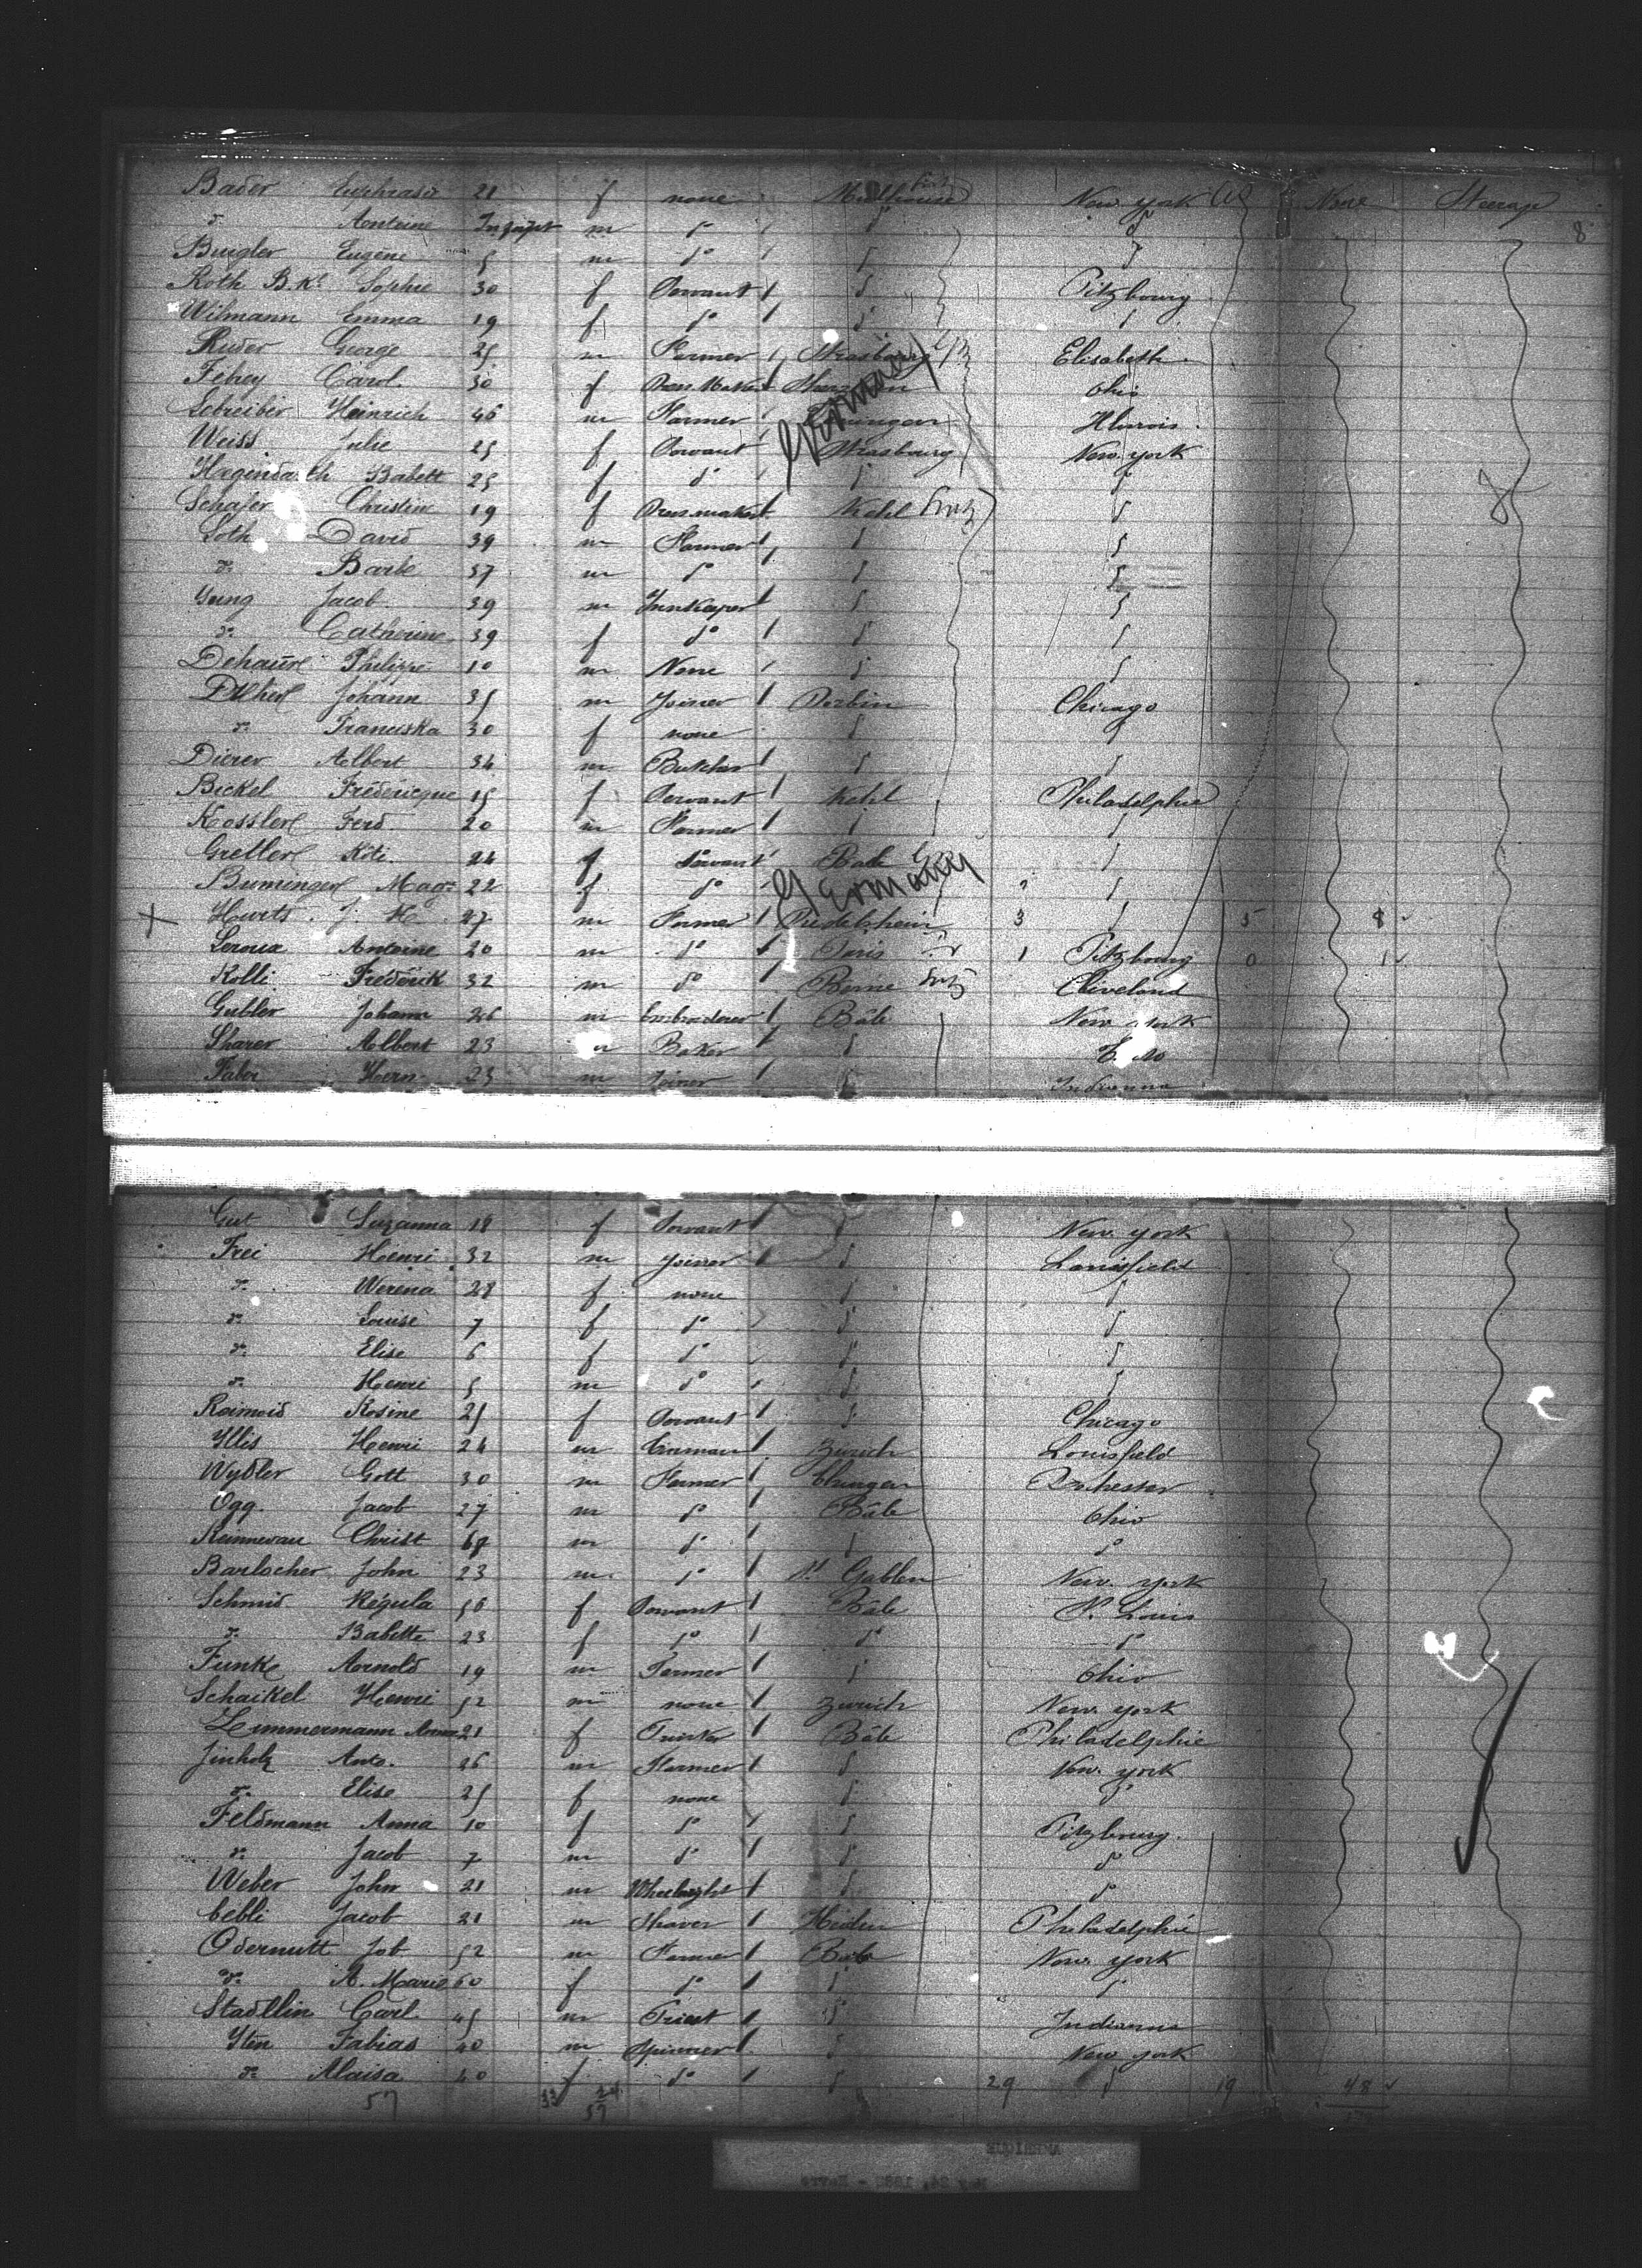 Bader Euphrasie 21 f none Mulhouse New. york US None Steerage
do Antoine Infant m do do do 8
Buigler Eugène 5 m do do do
Roth B. Kl Sophie 30 f Servant do Pitzbourg
Wilmann Emma 19 f do do do
Ruder George 25 m Farmer Strasbourg Elisabeth
Fehey Carol. 30 f Dress Maker Ohio
Germany
Schreiber Heinrich 46 m Farmer Illinois
Weiss Julie 25 f Servant Strasbourg New. york
Babett 25 f do do do
Schafer Christine 19 f Dressmaker Kehl Switz do
Loth David 39 m Farmer do do
do Barbe 37 m do do do
Yung Jacob 39 m Innkeeper do do
do Catherine 39 f do do do
Philippe 10 m None do do
Johann 35 m Joiner Chicago
do Franciska 30 f none do do
Dierer Albert 34 m Butcher do do
Bickel Frédéricque 15 f Servant Kehl Philadelphie
Kossler Ferd. 20 m Farmer do do
Gretler Kéti. 24 f Servant Bale do
Germany
Buminger Mag. 22 f do do
Hurts. J. H. 27 m Farmer Riedelsheim 3 do 5 8
Leroux Antoine 20 m do Paris 1 Pitzbourg 0 1
Kolli Fréderik 32 m do Berne Switz Cleveland
Gubler Johann 26 m Embroiderer Bâle New york
Sharer Albert 23 m Baker do
Faber Hern. 23 m Joiner do Indianna
Gut Suzanna 18 f Servant do New. york
Frei Henri 32 m Joiner do Louisfield
do Werena 28 f none do do
do Louise 7 f do do do
do Elise 6 f do do do
do Henri 5 m do do do
Raimoid Rosine 25 f Servant do Chicago
Yllis Henri 24 m Tinman Zurich Louisfield
Wydler Gott 30 m Farmer Rochester
Ogg. Jacob 27 m do Bâle Ohio
Christ m do do do
Barlocher John 23 m do St Gablen New. york
Schmid Régula 56 f Servant Bâle St. Louis
do Babette 23 f do do do
Funke Arnold 19 m Farmer do Ohio
Schaikel Henri 52 m none Zurich New. york
Zimmermann Anna 21 f Bâle Philadelphie
Jinholz Anto. 26 m Farmer do New. york
do Elise 25 f none do do
Feldmann Anna 10 f do do Pitzbourg.
do Jacob 7 m do do do
Weber John 21 m Wheelwright do do
Jacob 21 m Heiden Philadelphie
Odermutt Job 52 m Farmer Bale New. york
do A. Marie 60 f do do do
Stadllin Carl 45 m Priest do Indianna
Yten Fabias 40 m Spinner do New york
do Aloisa 40 f do do 29 do 19 48
57 33 24
57